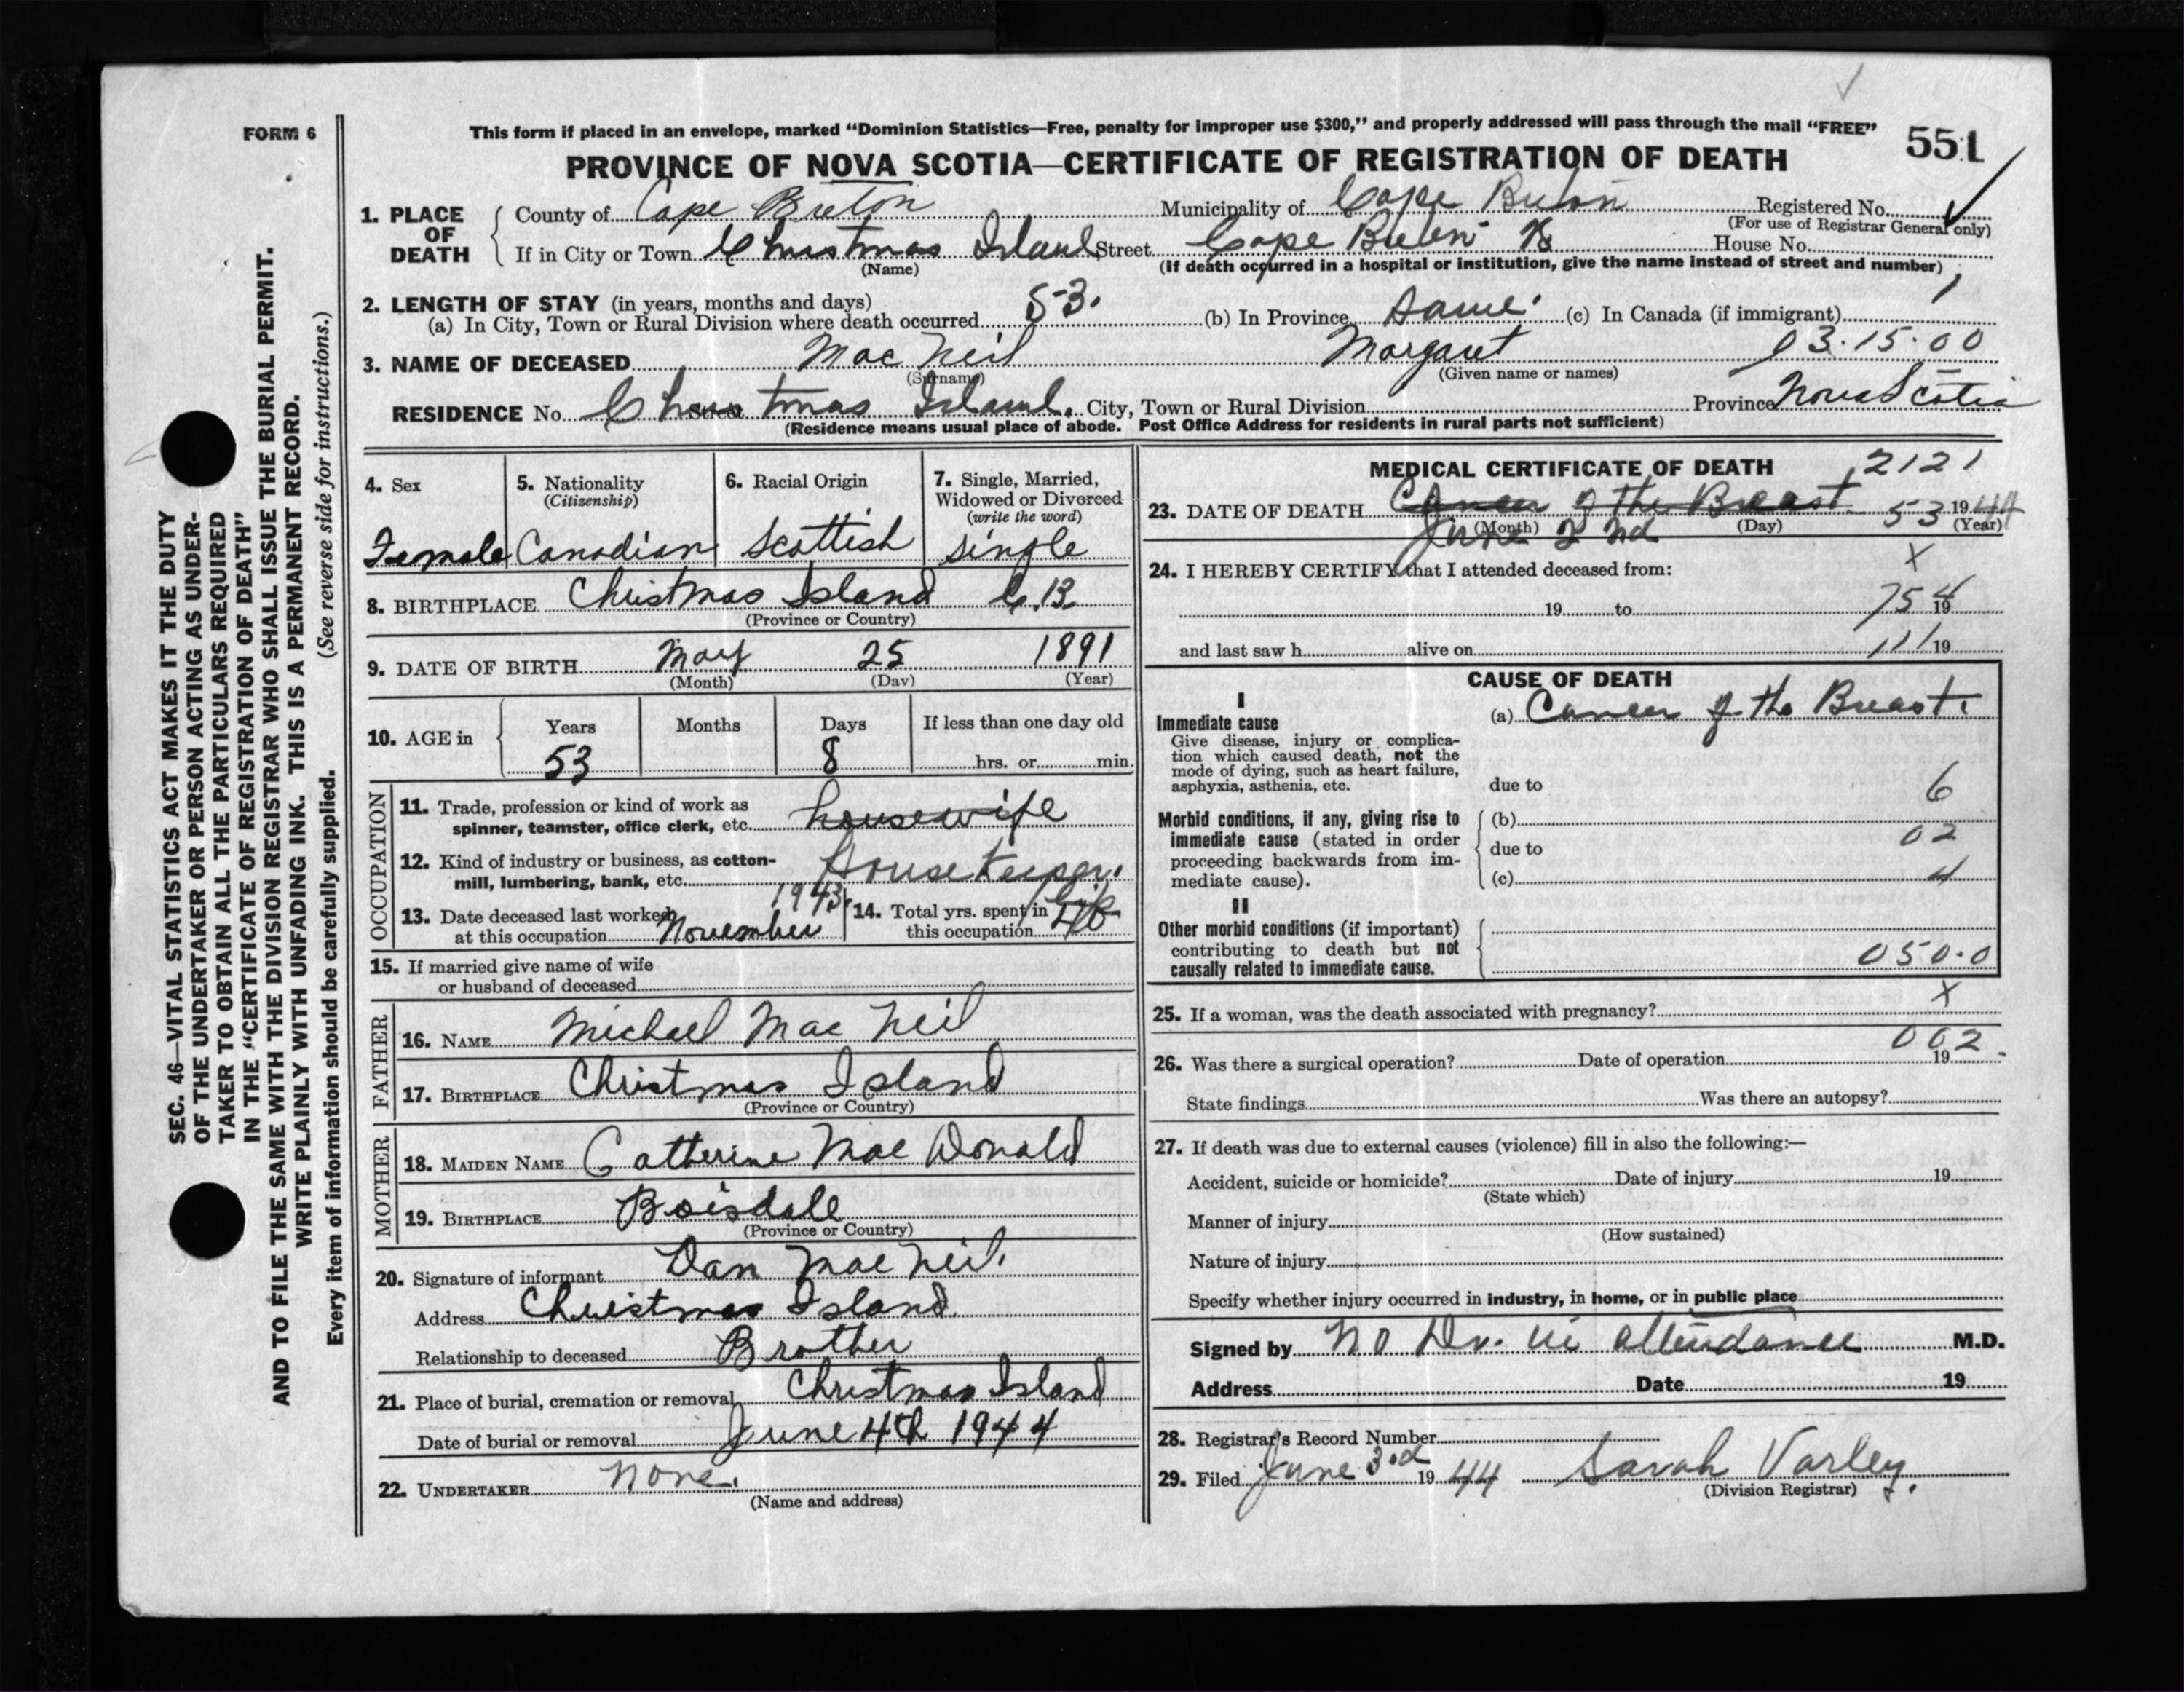 FORM 6
This form if placed in an envelope, marked “Dominion Statistics—Free, penalty for improper use $300,” and properly addressed will pass through the mail “FREE”
551
PROVINCE OF NOVA SCOTIA—CERTIFICATE OF REGISTRATION OF DEATH
1. PLACE OF DEATH
County of Cape Breton Municipality of Cape Breton Registered No.
(For use of Registrar General only)
If in City or Town Christmas Island Street Cape Breton House No.
(Name) (If death occurred in a hospital or institution, give the name instead of street and number)
2. LENGTH OF STAY (in years, months and days)
(a) In City, Town or Rural Division where death occurred 53. (b) In Province Same (c) In Canada (if immigrant)
3. NAME OF DECEASED Mac Neil Margaret 03.15.00
(Surname) (Given name or names)
RESIDENCE No. Christmas Island. Street City, Town or Rural Division Province Nova Scotia
(Residence means usual place of abode. Post Office Address for residents in rural parts not sufficient)
4. Sex Female
5. Nationality (Citizenship) Canadian
6. Racial Origin Scottish
7. Single, Married, Widowed or Divorced (write the word) single
8. BIRTHPLACE Christmas Island C.B.
(Province or Country)
9. DATE OF BIRTH May 25 1891
(Month) (Day) (Year)
10. AGE in Years 53 Months Days 8 If less than one day old hrs. or min.
OCCUPATION
11. Trade, profession or kind of work as spinner, teamster, office clerk, etc. housewife
12. Kind of industry or business, as cotton-mill, lumbering, bank, etc. House Keeper.
13. Date deceased last worked at this occupation November 1943.
14. Total yrs. spent in this occupation
15. If married give name of wife or husband of deceased
FATHER
16. NAME Michael Mac Neil
17. BIRTHPLACE Christmas Island
(Province or Country)
MOTHER
18. MAIDEN NAME Catherine Mac Donald
19. BIRTHPLACE Boisdale
(Province or Country)
20. Signature of informant Dan Mac Neil.
Address Christmas Island
Relationship to deceased Brother
21. Place of burial, cremation or removal Christmas Island
Date of burial or removal June 4th 1944
22. UNDERTAKER None.
(Name and address)
MEDICAL CERTIFICATE OF DEATH 2121
23. DATE OF DEATH Cancer of the Breast 53 1944
(Month) (Day) (Year)
June 2nd
24. I HEREBY CERTIFY that I attended deceased from: x
19 to 754 19
and last saw h alive on 111 19
CAUSE OF DEATH
I
Immediate cause
Give disease, injury or complication which caused death, not the mode of dying, such as heart failure, asphyxia, asthenia, etc.
(a) Cancer of the Breast.
due to 6
Morbid conditions, if any, giving rise to immediate cause (stated in order proceeding backwards from immediate cause).
(b)
due to 02
(c) 4
II
Other morbid conditions (if important) contributing to death but not causally related to immediate cause.
050.0
25. If a woman, was the death associated with pregnancy? x
26. Was there a surgical operation? Date of operation 19 002
State findings Was there an autopsy?
27. If death was due to external causes (violence) fill in also the following:—
Accident, suicide or homicide? Date of injury 19
(State which)
Manner of injury
(How sustained)
Nature of injury
Specify whether injury occurred in industry, in home, or in public place
Signed by No Dr. in attendance M.D.
Address Date 19
28. Registrar's Record Number
29. Filed June 3rd 1944 Sarah Varley.
(Division Registrar)
SEC. 46—VITAL STATISTICS ACT MAKES IT THE DUTY
OF THE UNDERTAKER OR PERSON ACTING AS UNDER-
TAKER TO OBTAIN ALL THE PARTICULARS REQUIRED
IN THE “CERTIFICATE OF REGISTRATION OF DEATH”
AND TO FILE THE SAME WITH THE DIVISION REGISTRAR WHO SHALL ISSUE THE BURIAL PERMIT.
WRITE PLAINLY WITH UNFADING INK. THIS IS A PERMANENT RECORD.
Every item of information should be carefully supplied. (See reverse side for instructions.)